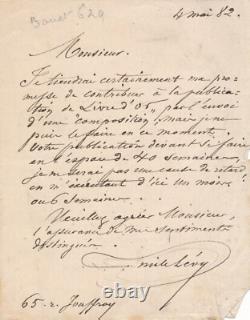 4 mai 82.
Monsieur.
Je tiendrai certainement ma pro-
messe de contribuer à la publica-
tion du Livre d'or, par l'envoi
d'une "composition", mais je ne
puis le faire en ce moment.
Votre publication devant se faire
en l'espace de 40 semaines,
je ne serai pas une cause de retard
en n'exécutant d'ici un mois
ou 6 semaines.
Veuillez agréer Monsieur,
l'assurance de mes sentiments
distingués.
Emile Lévy
65. r. Jouffroy